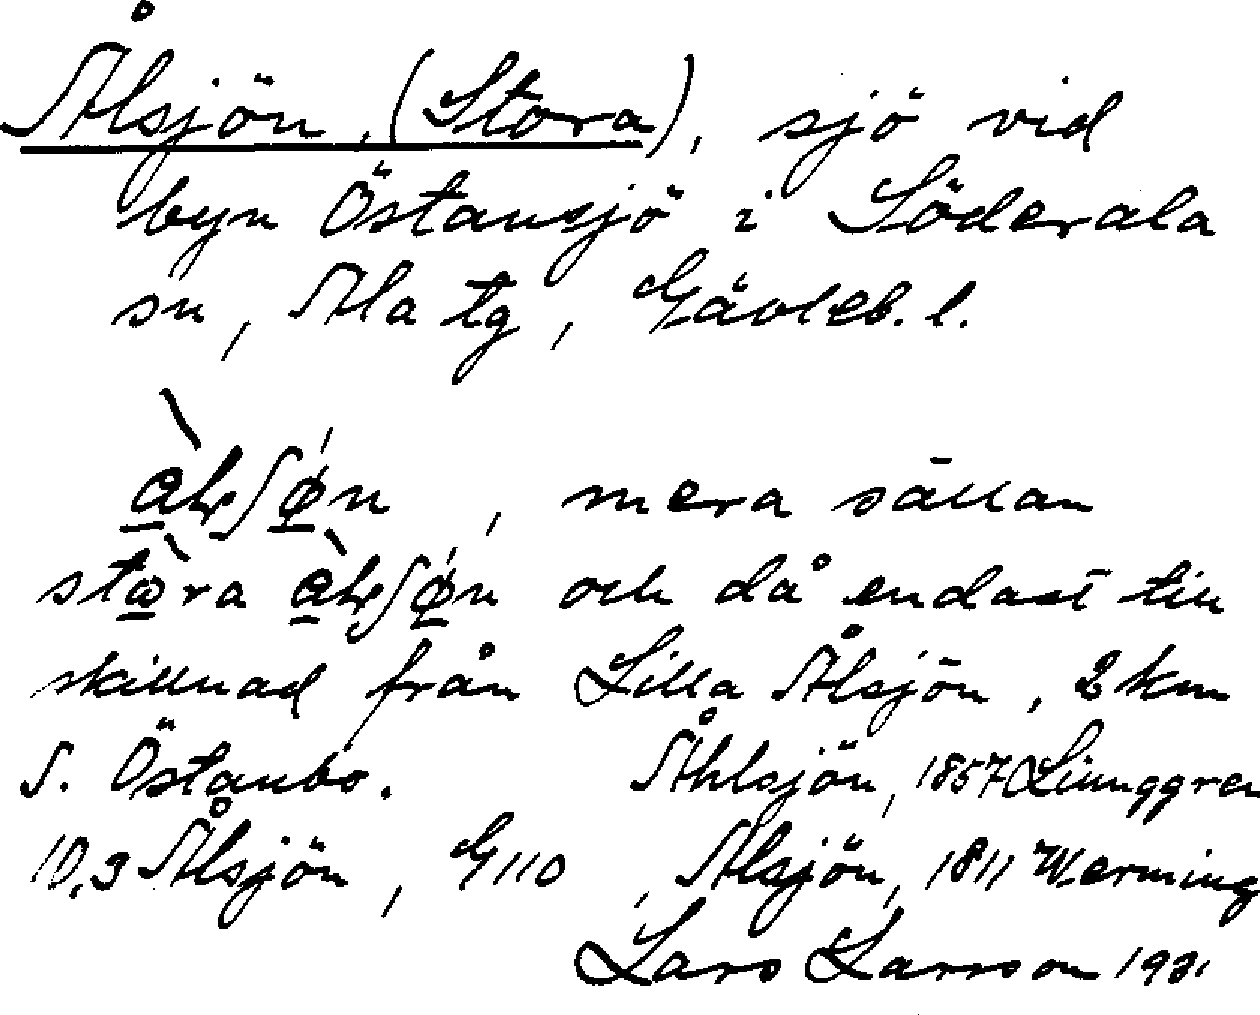 Ålsjön, (Stora), sjö vid
byn Östansjö i Söderala
sn, Ala tg, Gävleb. l.
, mera sällan
och då endast till
skillnad från Lilla Ålsjön, 2 km
S. Östanbo. Åhlsjön, 1857 Ljunggren
10,3 Ålsjön, G110, Alsjön, 1811 Werming
Lars Larsson 1931